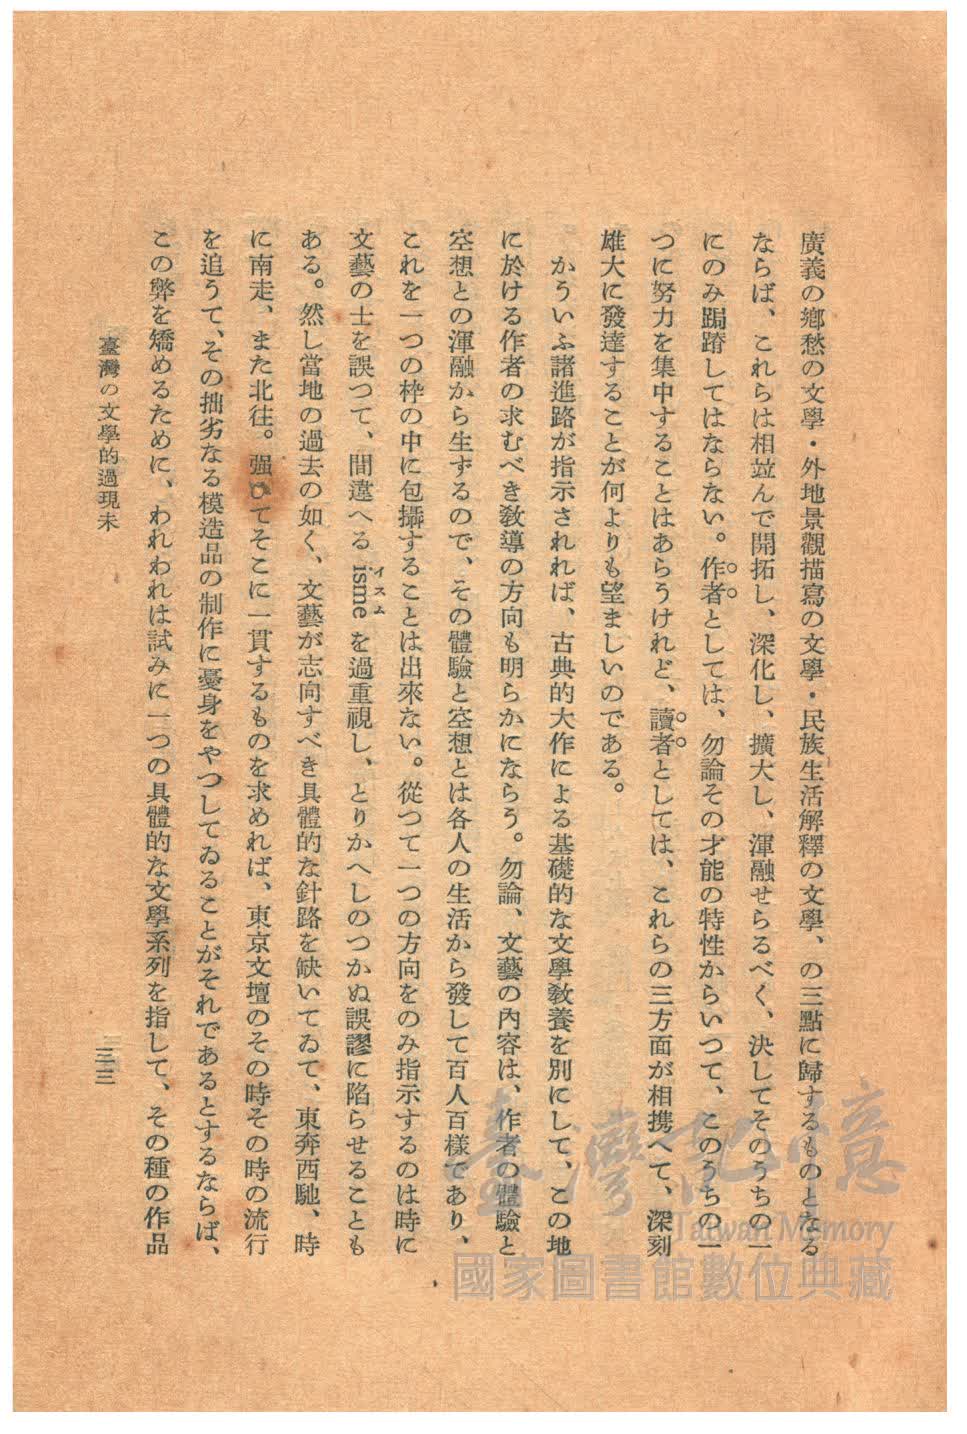 廣義の鄕愁の文學・外地景觀描寫の文學・民族生活解釋の文學、の三點に歸するものとなる
ならば、これらは相竝んで開拓し、深化し、擴大し、渾融せらるべく、決してそのうちの一
にのみ跼蹐してはならない。作者としては、勿論その才能の特性からいつて、このうちの一
つに努力を集中することはあらうけれど、讀者としては、これらの三方面が相携へて、深刻
雄大に發達することが何よりも望ましいのである。
かういふ諸進路が指示されれば、古典的大作による基礎的な文學敎養を別にして、この地
に於ける作者の求むべき敎導の方向も明らかにならう。勿論、文藝の內容は、作者の體驗と
空想との渾融から生ずるので、その體驗と空想とは各人の生活から發して百人百樣であり、
これを一つの枠の中に包攝することは出來ない。從つて一つの方向をのみ指示するのは時に
文藝の士を誤つて、間違へる isme を過重視し、とりかへしのつかぬ誤謬に陷らせることも
イスム
ある。然し當地の過去の如く、文藝が志向すべき具體的な針路を缺いてゐて、東奔西馳、時
に南走、また北往。强ひてそこに一貫するものを求めれば、東京文壇のその時その時の流行
を追うて、その拙劣なる模造品の制作に憂身をやつしてゐることがそれであるとするならば、
この弊を矯めるために、われわれは試みに一つの具體的な文學系列を指して、その種の作品
臺灣の文學的過現未
三三
臺灣記憶
Taiwan Memory
國家圖書館數位典藏